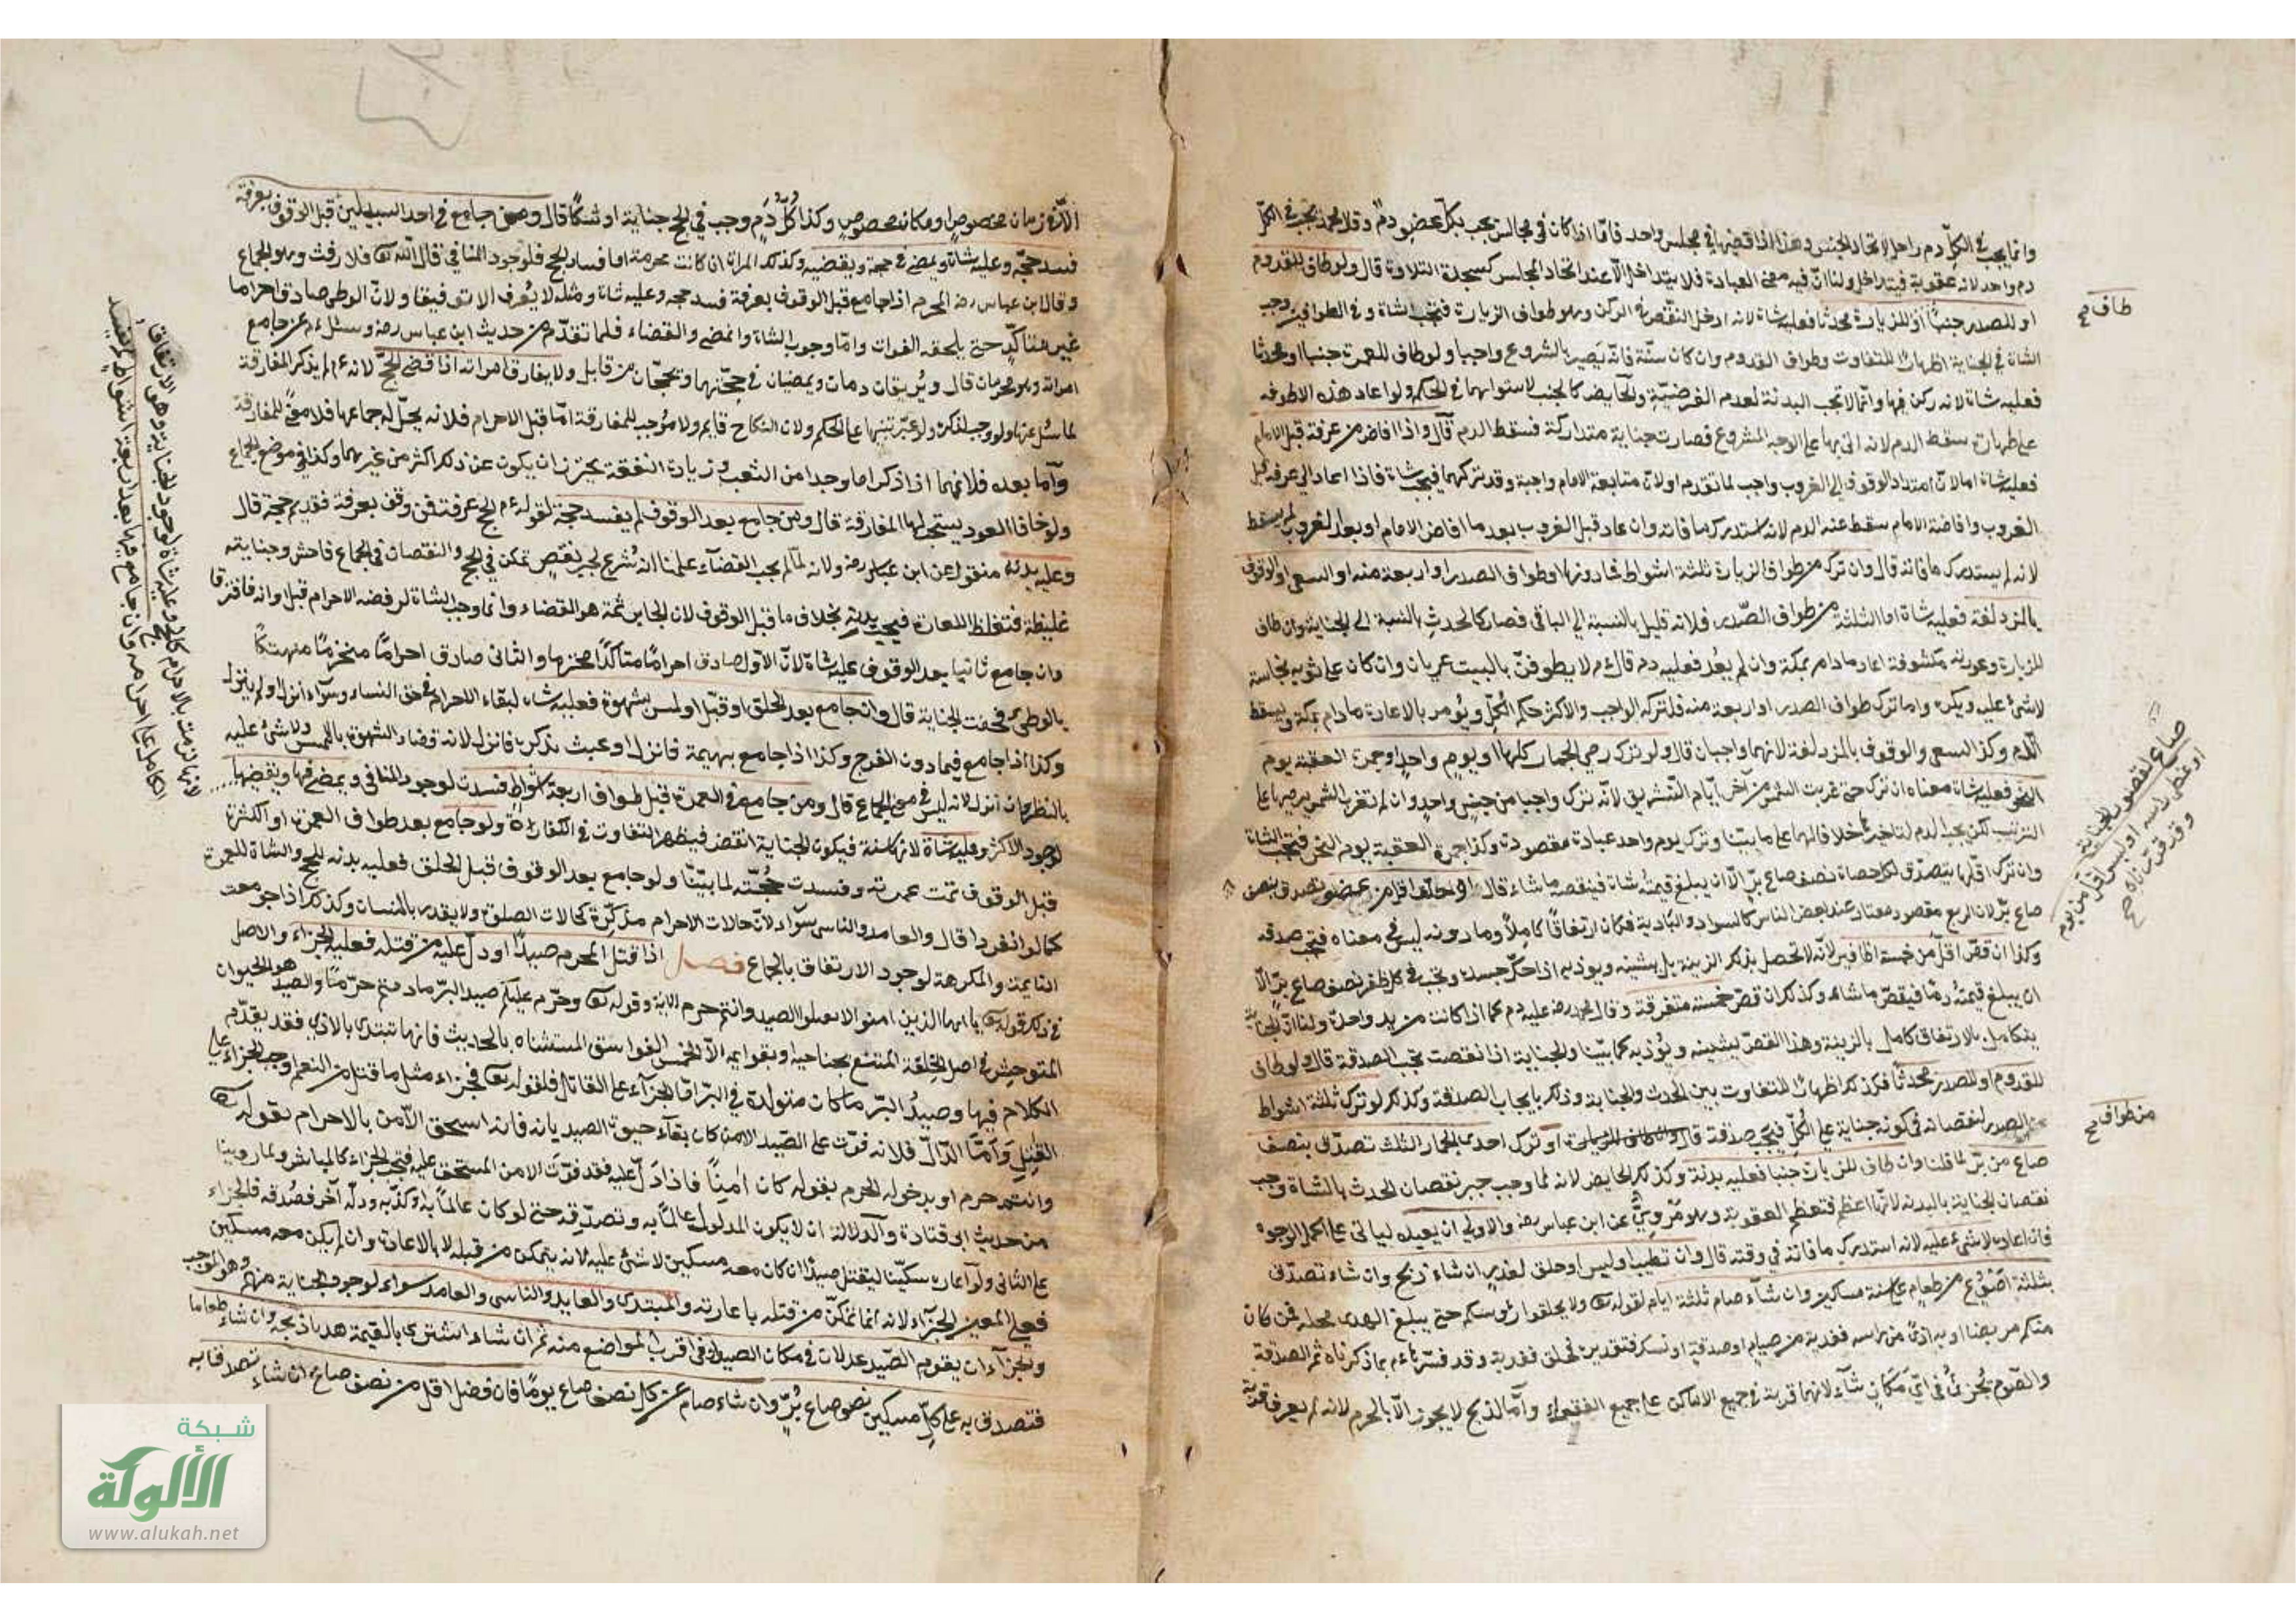 وانما يجب في الكل دم واحد لاتحاد الجنس وهذا اذا قصها في مجلس واحد فاما اذا كان في مجالس يجب بكل عضو دم وقال محمد يجب في الكل
دم واحد لانه عقوبة فيتداخل ولنا ان فيه معنى العبادة فلا يتداخل الا عند اتحاد المجلس كسجدة التلاوة قال ولو طاف للقدوم
او للصدر جنبا او للزيارة محدثا فعليه شاة لانه ادخل النقص في الركن وهو طواف الزيارة فتجب الشاة وفي الطوافين وجب
الشاة في الجنابة اظهارا للتفاوت وطواف القدوم وان كان سنة فانه يصير بالشروع واجبا ولو طاف للعمرة جنبا او محدثا
فعليه شاة لانه ركن فيها وانما لا تجب البدنة لعدم الفرضية والحايض كالجنب لاستوايهما في الحكم ولو اعاد هذه الاطوفه
على طهارة سقط الدم لانه اتى بها على الوجه المشروع فصارت جناية متداركة فسقط الدم قال واذا افاض من عرفة قبل الامام
فعليه شاة اما لان امتداد الوقوف الى الغروب واجب لما تقدم او لان متابعة الامام واجبة وقد تركهما فيجب شاة فاذا عاد الى عرفة قبل
الغروب وافاضة الامام سقط عنه الدم لانه استدرك ما فاته وان عاد قبل الغروب بعد ما افاض الامام او بعد الغروب لم يسقط
لانه لم يستدرك ما فاته قال وان ترك من طواف الزيارة ثلثة اشواط فما دونها او طواف الصدر او اربعة منه او السعي او الوقوف
بالمزدلفة فعليه شاة اما الثلثة من طواف الصدر فلانه قليل بالنسبة الى الباقي فصار كالحدث بالنسبة الى الجنابة وان طاف
للزيارة وعورته مكشوفة اعاد مادام بمكة وان لم يعد فعليه دم قال م لا يطوفن بالبيت عريان وان كان على ثوبه نجاسة
لا شئ عليه ويكره واما ترك طواف الصدر او اربعة منه فلتركه الواجب والاكثر حكم الكل ويؤمر بالاعادة مادام بمكة ويسقط
الدم وكذا السعي والوقوف بالمزدلفة لانهما واجبان قال ولو ترك رمي الجمار كلها او يوم واحد او جمرة العقبة يوم
النحر فعليه شاة معناه ان ترك حتى غربت الشمس من آخر ايام التشريق لانه ترك واجبا من جنس واحد وان لم تغرب الشمس يرميها على
الترتيب لكن يجب الدم لتاخيرها خلافا لهما على ما بينا وترك يوم واحد عبادة مقصودة وكذا جمرة العقبة يوم النحر فتجب الشاة
وان ترك اقلها يتصدق لكل حصاة نصف صاع بر الا ان يبلغ قيمته شاة فينقصه ما شاء قال او حلق اقل من عضو تصدق بنصف
صاع بر لان الربع مقصود معتاد عند بعض الناس كالسواد والبادية فكان ارتفاقا كاملا وما دونه ليس في معناه فتجب صدقه
وكذا ان قص اقل من خمسة اظافير لانه لا تحصل بذلك الزينة بل يشينه ويوذيه اذا حك جسده وتجب في كل ظفر نصف صاع بر الا
ان يبلغ قيمته دما فينقص ما شاء وكذلك ان قص خمسة متفرقة وقال محمد رحه عليه دم كما اذا كانت من يد واحدة ولنا ان الجناية
يتكامل بالارتفاق كامل بالزينة وهذا القص يشينه ويؤذيه كما بينا والجناية اذا نقصت تجب الصدقة قال ولو طاف
للقدوم او للصدر محدثا فكذلك اظهارا للتفاوت بين الحدث والجنابة وذلك بايجاب الصدقة وكذلك لو ترك ثلثة اشواط
الصدر لنقصانه في كونه جناية على الكل فيجب صدقة قال او ترك احدى الجمار الثلث تصدق بنصف
صاع من بر لما قلنا وان طاف للزيارة جنبا فعليه بدنة وكذلك الحايض لانه لما وجب جبر نقصان الحدث بالشاة وجب
نقصان الجنابة بالبدنة لانها اعظم فتعظم العقوبة وهو مروي عن ابن عباس رضه والاولى ان يعيده لياتي على اكمل الوجوه
فان اعاده لا شئ عليه لانه استدرك ما فاته في وقته قال وان تطيب او لبس او حلق لعذر ان شاء ذبح وان شاء تصدق
بثلثة اصوع من طعام على ستة مساكين وان شاء صام ثلثة ايام لقوله تع ولا يحلقوا رؤسكم حتى يبلغ الهدى محله فمن كان
منكم مريضا او به اذى من راسه ففدية من صيام او صدقة او نسك فتقديره فحلق ففدية وقد فسرناه م بما ذكرناه ثم الصدقة
والصوم تجزئ في اي مكان شاء لانهما قربة في جميع الاماكن على جميع الفقراء واما الذبح لا يجوز الا بالحرم لانه لم يعرف قربة
طاف صح
صاع لقصور الجناية
او غطى راسه او لبس اقل من يوم
وقد قررناه صح
من طواف صح
الا في زمان مخصوص او مكان مخصوص وكذا كل دم وجب في الحج جناية او نسكا قال ومن جامع في احد السبيلين قبل الوقوف بعرفة
فسد حجه وعليه شاة ويمضي في حجه ويقضيه وكذلك المراة ان كانت محرمة اما فساد الحج فلوجود المنافي قال الله تع فلا رفث وهو الجماع
وقال ابن عباس رضه المحرم اذا جامع قبل الوقوف بعرفة فسد حجه وعليه شاة ومثله لا يعرف الا توقيفا ولان الوطى صادق احراما
غير متاكد حتى يلحقه الفوات واما وجوب الشاة والمضي والقضاء فلما تقدم من حديث ابن عباس رضه وسئل م عمن جامع
امراته وهو محرمان قال ويريقان دمان ويمضيان في حجتهما ويحجان من قابل ولا يفارق امراته اذا قضى الحج لانه م لم يذكر المفارقة
لما سئل عنها ولو وجب لذكره ولو عبر تنبيها على الحكم ولان النكاح قايم ولا موجب للمفارقة اما قبل الاحرام فلانه يحل له جماعها فلا معنى للمفارقة
واما بعده فلانهما اذا ذكرا ما وجدا من التعب وزيادة النفقة يحترزان يكون عن ذلك اكثر من غيرهما وكذا في موضع الجماع
ولو خافا العود يستحب لهما المفارقة قال ومن جامع بعد الوقوف لم يفسد حجة لقوله م الحج عرفة فمن وقف بعرفة فقد تم حجة قال
وعليه بدنة منقول عن ابن عباس رضه ولانه لما لم يجب القضاء علمنا انه شرع لجبر نقص تمكن في الحج والنقصان في الجماع فاحش وجنايته
غليظة فتغلظ الكفارة فيجب بدنة بخلاف ما قبل الوقوف لان الجابر ثمة هو القضاء وانما وجب الشاة لرفضه الاحرام قبل اوانه فافترقا
وان جامع ثانيا بعد الوقوف عليه شاة لان الاول صادق احراما متاكدا محترما والثاني صادق احراما منخرما منهتكا
بالوطى فخفت الجناية قال وان جامع بعد الحلق او قبل او لمس بشهوة فعليه شاة لبقاء الاحرام في حق النساء وسواء انزل او لم ينزل
وكذا اذا جامع فيما دون الفرج وكذا اذا جامع بهيمة فانزل او عبث بذكره فانزل لانه قضاء الشهوة باللمس ولا شئ عليه
بالنظر وان انزل لانه ليس في معنى الجماع قال ومن جامع في العمرة قبل طواف اربعة اشواط فسدت لوجود المنافي ويمضي فيها ويقضيها
لوجود الاكثر وعليه شاة لانها سنة فيكون الجناية انقص فيظهر التفاوت في الكفارة ولو جامع بعد طواف العمرة او اكثره
قبل الوقوف تمت عمرته وفسدت حجته لما بينا ولو جامع بعد الوقوف قبل الحلق فعليه بدنه للحج والشاة للعمرة
كما لو انفردا قال والعامد والناسي سواء لان حالات الاحرام مذكرة كحالات الصلوة ولا يعذر بالنسيان وكذلك اذا جومعت
النايمة والمكرهة لوجود الارتفاق بالجماع فصل اذا قتل المحرم صيدا او دل عليه من قتله فعليه الجزاء والاصل
في ذلك قوله تع يا ايها الذين امنوا لا تقتلوا الصيد وانتم حرم الاية وقوله تع وحرم عليكم صيد البر ما دمتم حرما والصيد هو الحيوان
المتوحش في اصل الخلقة الممتنع بجناحيه او بقوايمه الا الخمس الفواسق المستثناه بالحديث فانها تبتدئ بالاذى فقد تقدم
الكلام فيها وصيد البر ما كان متولدة في البر اما الجزاء على القاتل فلقوله تع فجزاء مثل ما قتل من النعم اوجب الجزاء على
القتل واما الدال فلانه فوت على الصيد الامن كان بقاء حيوة الصيد بانه فانه استحق الامن بالاحرام بقوله تع
وانتم حرم او بدخوله الحرم بقوله كان امنا فاذا دل عليه فقد فوت الامن المستحق عليه فتجب الجزاء كالمباشر ولما روينا
من حديث ابي قتادة والدلالة ان لا يكون المدلول عالما به وتصدقه حتى لو كان عالما به او كذبه ودله آخر فصدقه فالجزاء
على الثاني ولو اعاره سكينا ليقتل صيدا ان كان معه سكين لا شئ عليه لانه يتمكن من قتله لا بالاعارة وان لم يكن معه سكين
فعلى المعير الجزاء لانه انما تمكن من قتله باعارته والمبتدئ والعايد والناسي والعامد سواء لوجود الجناية منهم وهو الموجب
والجزاء ان يقوم الصيد عدلان في مكان الصيد او في اقرب المواضع منه ثم ان شاء اشترى بالقيمة هديا ذبحه وان شاء طعاما
فتصدق به على كل مسكين نصف صاع بر وان شاء صام عن كل نصف صاع يوما فان فضل اقل من نصف صاع ان شاء تصدقا به
لانها لزمت بالاحرام كالحج وعليه شاة لوجود الجناية وهو الارتفاق
الكامل على احرامه وان جامع فيها بعد اربعة اشواط لم يفسد
شبكة
الألوكة
www.alukah.net